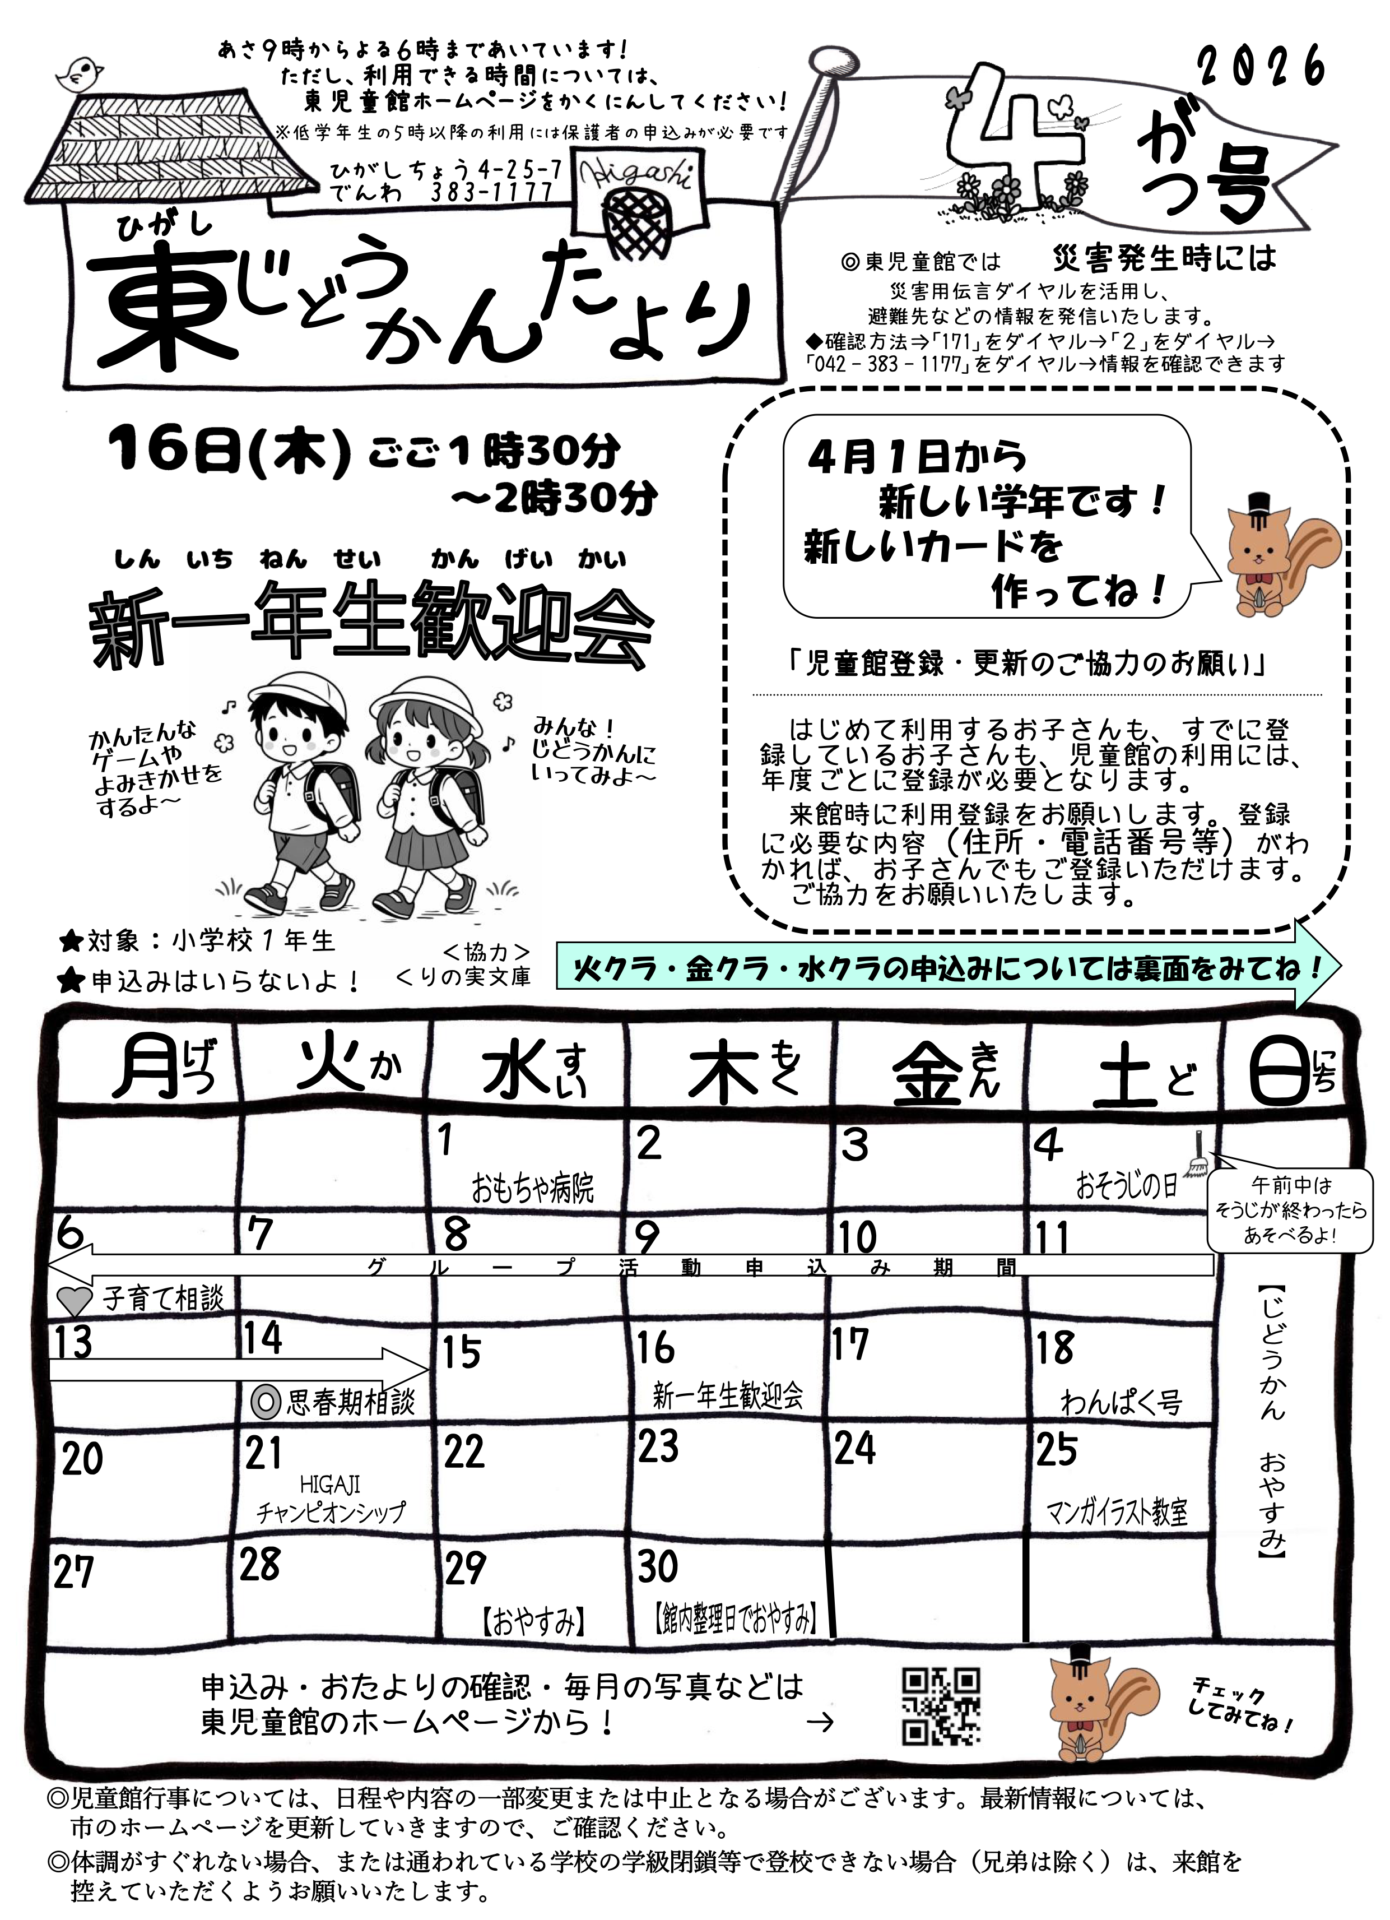 あさ9時からよる6時まであいています!
ただし、利用できる時間については、
東児童館ホームページをかくにんしてください!
※低学年生の5時以降の利用には保護者の申込みが必要です
ひがしちょう4-25-7
でんわ 383-1177
Higashi
ひがし
東じどうかんたより
2026
4がつ号
◎東児童館では 災害発生時には
災害用伝言ダイヤルを活用し、
避難先などの情報を発信いたします。
◆確認方法⇒「171」をダイヤル→「2」をダイヤル→
「042－383－1177」をダイヤル→情報を確認できます
16日(木) ごご1時30分
～2時30分
しん いち ねん せい かん げい かい
新一年生歓迎会
かんたんな
ゲームや
よみきかせを
するよ～
みんな！
じどうかんに
いってみよ～
★対象：小学校1年生
★申込みはいらないよ！
＜協力＞
くりの実文庫
4月1日から
新しい学年です！
新しいカードを
作ってね！
「児童館登録・更新のご協力のお願い」
はじめて利用するお子さんも、すでに登
録しているお子さんも、児童館の利用には、
年度ごとに登録が必要となります。
来館時に利用登録をお願いします。登録
に必要な内容（住所・電話番号等）がわ
かれば、お子さんでもご登録いただけます。
ご協力をお願いいたします。
火クラ・金クラ・水クラの申込みについては裏面をみてね！
月げつ 火か 水すい 木もく 金きん 土ど 日にち
1 2 3 4
おもちゃ病院 おそうじの日
午前中は
そうじが終わったら
あそべるよ!
6 7 8 9 10 11
グループ活動申込み期間
子育て相談
13 14 15 16 17 18
思春期相談 新一年生歓迎会 わんぱく号
20 21 22 23 24 25
HIGAJI
チャンピオンシップ マンガイラスト教室
27 28 29 30
【おやすみ】 【館内整理日でおやすみ】
【じどうかん おやすみ】
申込み・おたよりの確認・毎月の写真などは
東児童館のホームページから！ →
チェック
してみてね！
◎児童館行事については、日程や内容の一部変更または中止となる場合がございます。最新情報については、
市のホームページを更新していきますので、ご確認ください。
◎体調がすぐれない場合、または通われている学校の学級閉鎖等で登校できない場合（兄弟は除く）は、来館を
控えていただくようお願いいたします。